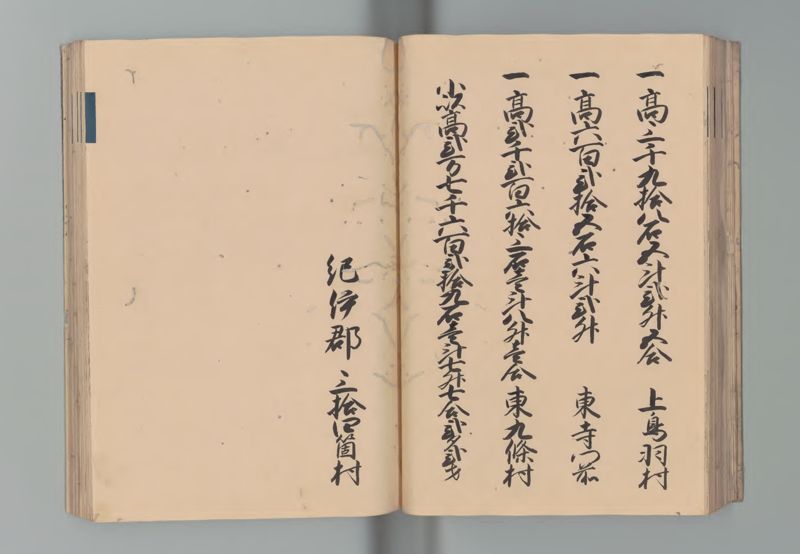 一高三千九拾八石五斗弐升五合 上鳥羽村
一高六百弐拾五石六斗弐升 東寺門前
一高弐千弐百六拾三石壱斗八升壱合 東九條村
小以高弐万七千六百弐拾九石壱斗七升七合弐勺弐才
紀伊郡 三拾四箇村